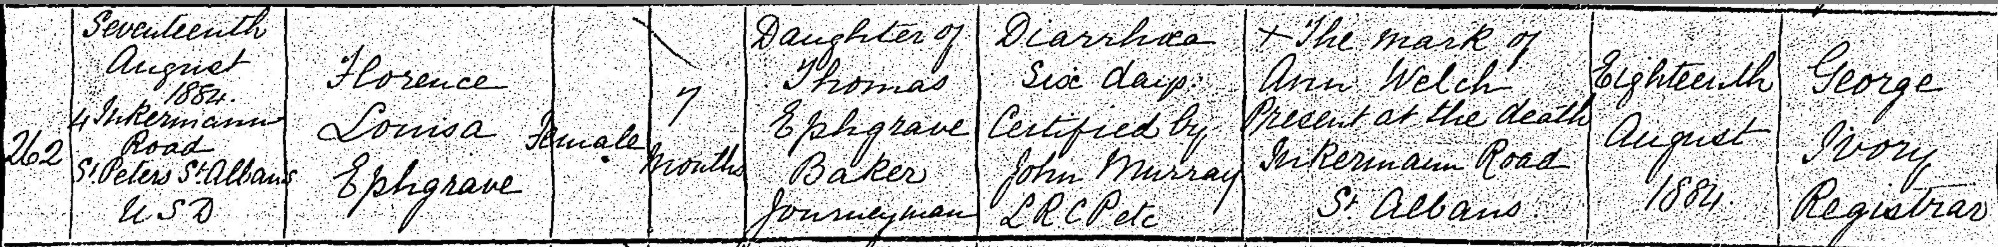 262
Seventeenth
August
1884.
4 Inkermann
Road
St. Peters St. Albans
U S D
Florence
Louisa
Ephgrave
Female
7
Months
Daughter of
Thomas
Ephgrave
Baker
Journeyman
Diarrhœa
Six days.
Certified by
John Murray
L R C P etc
X The mark of
Ann Welch
Present at the death
Inkermann Road
St. Albans.
Eighteenth
August
1884.
George
Ivory
Registrar